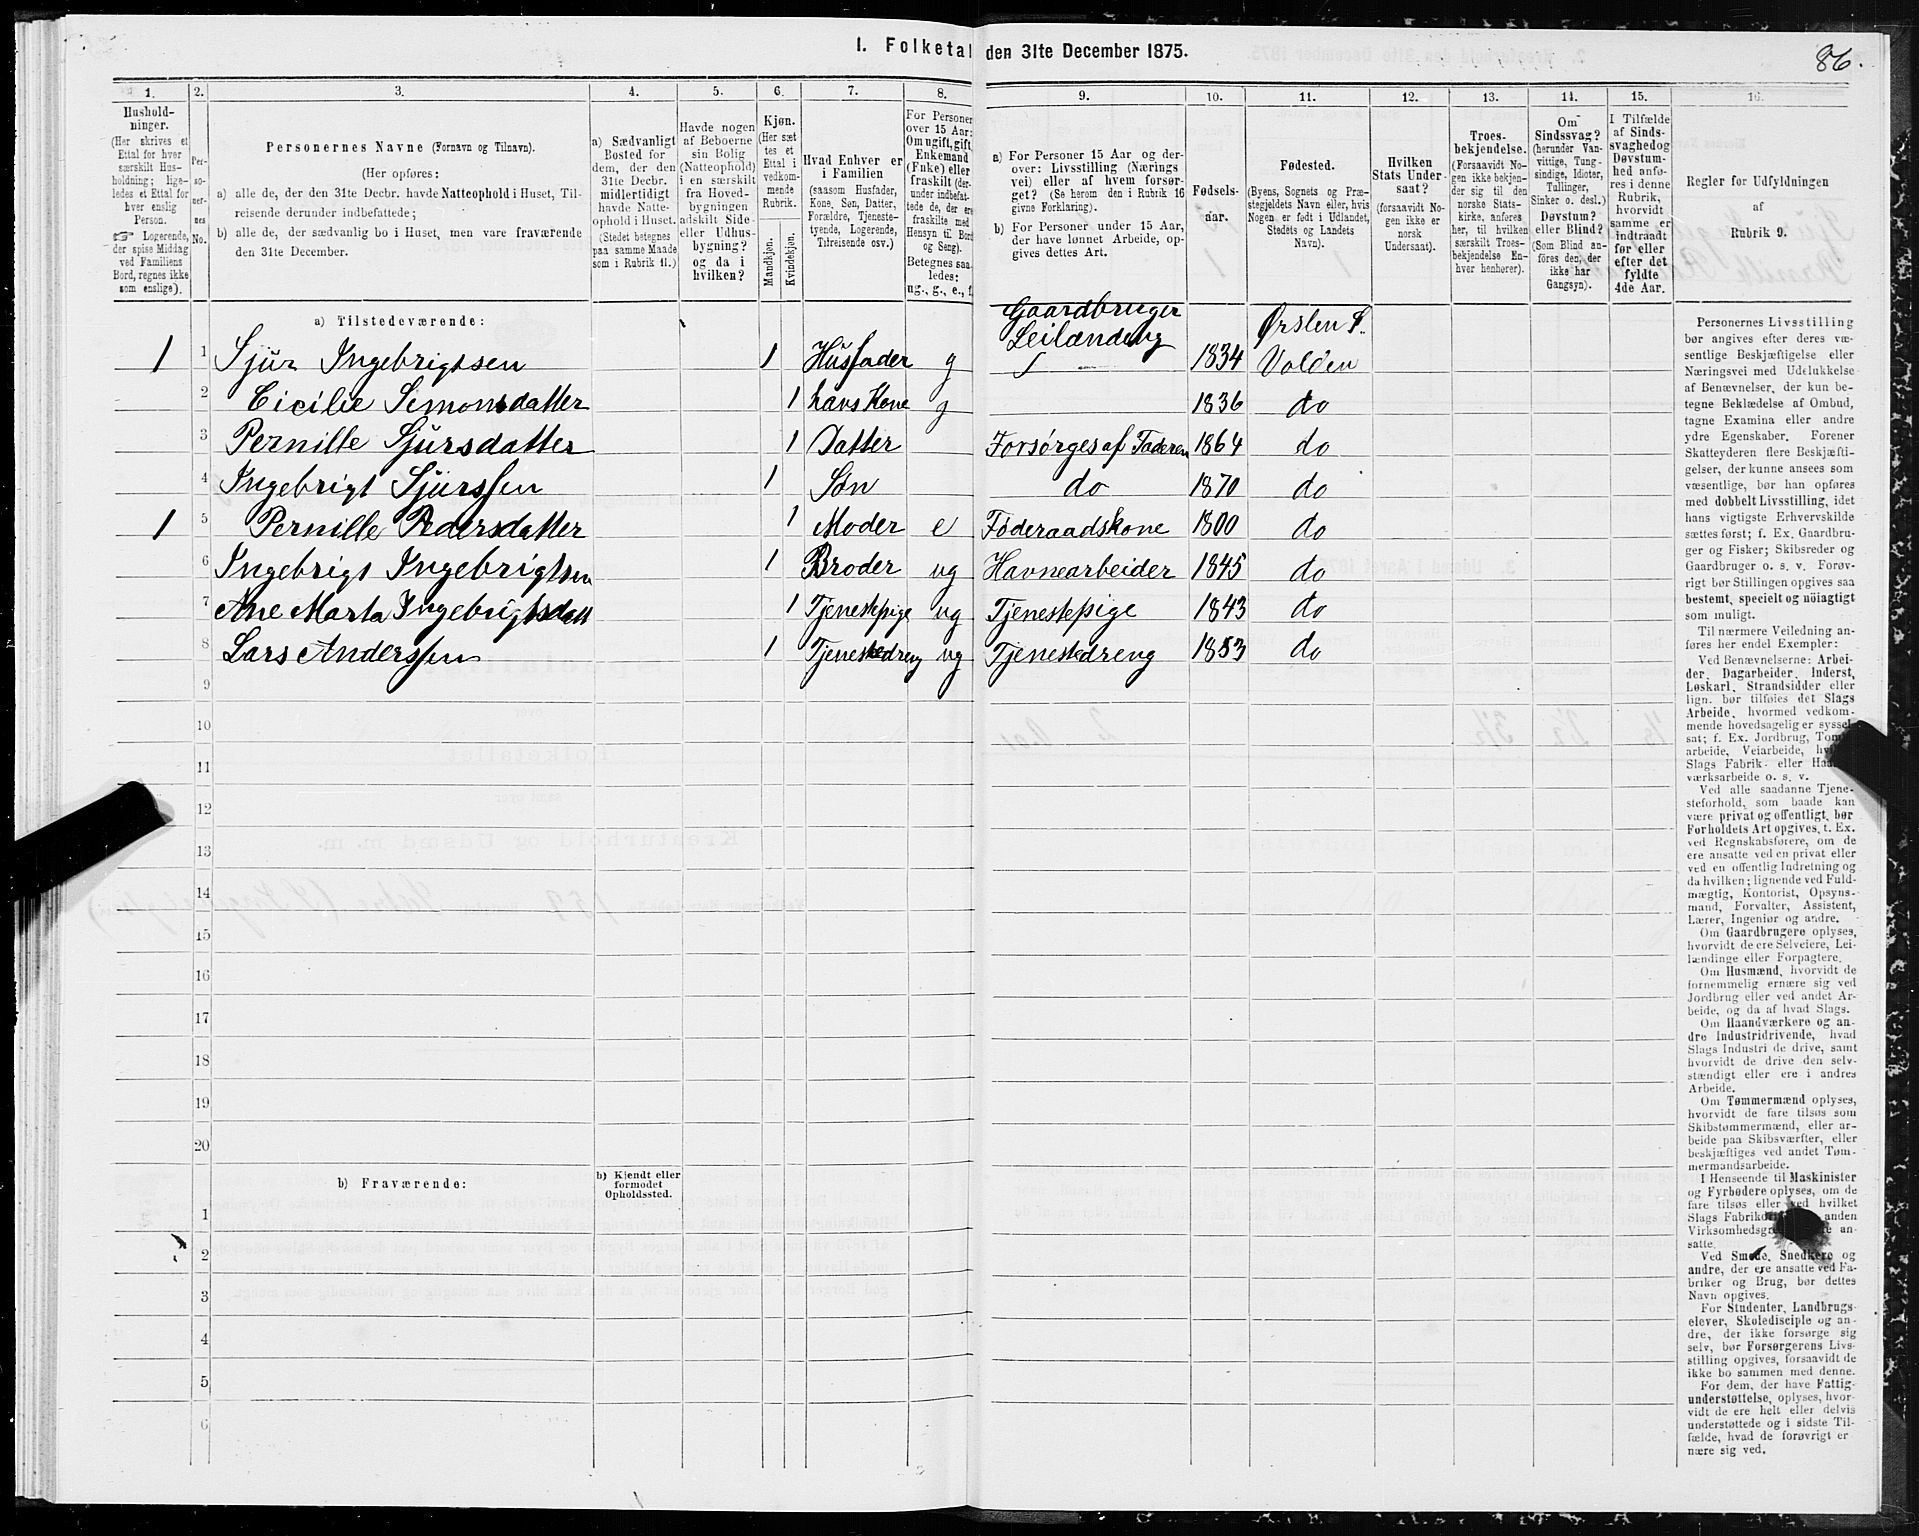 86.
I. Folketal den 31te December 1875.
1. 2. 3. 4. 5. 6. 7. 8. 9. 10. 11. 12. 13. 14. 15. 16.
Hushold-
ninger.
(Her skrives et
Ettal for hver
særskilt Hus-
holdning; lige-
ledes et Ettal for
hver enslig
Person.
☞ Logerende,
der spise Middag
ved Familiens
Bord, regnes ikke
som enslige).
Per-
so-
ner-
nes
No.
Personernes Navne (Fornavn og Tilnavn).
(Her opføres:
a) alle de, der den 31te Decbr. havde Natteophold i Huset, Til-
reisende derunder indbefattede;
b) alle de, der sædvanlig bo i Huset, men vare fraværende
den 31te December.
a) Sædvanligt
Bosted for
dem, der den
31te Decbr.
midlertidigt
havde Natte-
ophold i Huset.
(Stedet betegnes
paa samme Maade
som i Rubrik 11.)
Havde nogen
af Beboerne
sin Bolig
(Natteophold)
i en særskilt
fra Hoved-
bygningen
adskilt Side-
eller Udhus-
bygning?
og da i
hvilken?
Kjøn.
(Her sæt-
tes et
Ettal i
vedkom-
mende
Rubrik.
Mandkjøn.
Kvindekjøn.
Hvad Enhver er
i Familien
(saasom Husfader,
Kone, Søn, Datter,
Forældre, Tjeneste-
tyende, Logerende,
Tilreisende osv.)
For Personer
over 15 Aar:
Om ugift, gift,
Enkemand
(Enke) eller
fraskilt (der-
under indbefat-
tede de, der ere
fraskilte med
Hensyn til Bord
og Seng).
Betegnes saa-
ledes:
ug., g., e., f.
a) For Personer 15 Aar og der-
over: Livsstilling (Nærings
vei) eller af hvem forsør-
get. (Se herom den i Rubrik 16
givne Forklaring).
b) For Personer under 15 Aar,
der have lønnet Arbeide, op-
gives dettes Art.
Fødsels-
aar.
Fødested.
(Byens, Sognets og Præ-
stegjeldets Navn eller, hvis
Nogen er født i Udlandet,
Stedets og Landets
Navn).
Hvilken
Stats Under-
saat?
(forsaavidt No-
gen ikke er
norsk
Undersaat).
Troes-
bekjendelse.
(Forsaavidt No-
gen ikke bekjen-
der sig til den
norske Stats-
kirke, anføres
her, til hvilken
særskilt Troes-
bekjendelse En-
hver henhører).
Om
Sindssvag?
(herunder Van-
vittige, Tung-
sindige, Idioter,
Tullinger,
Sinker o. desl.)
Døvstum?
eller Blind?
(Som Blind an-
føres den, der
ikke har
Gangsyn).
I Tilfælde
af Sinds-
svaghed og
Døvstum-
hed anfø-
res i denne
Rubrik,
hvorvidt
samme er
indtraadt
før eller
efter det
fyldte
4de Aar.
Regler før Udfyldningen
af
Rubrik 9.
a) Tilstedeværende:
Gaardbruger Ørsten S.
Leilænding
1 1 Sjur Ingebrigtsen 1 Husfader g 1834 Volden
2 Cicilie Simonsdatter 1 hans Kone g 1836 do
3 Pernille Sjursdatter 1 Datter Forsørges af Faderen 1864 do
4 Ingebrigt Sjurssen 1 Søn do 1870 do
1 5 Pernille Pedersdatter 1 Moder e Føderaadskone 1800 do
6 Ingebrigt Ingebrigtsen 1 Broder ug Havnearbeider 1845 do
7 Ane Marta Ingebrigtsdatt 1 Tjenestepige ug Tjenestepige 1843 do
8 Lars Anderssen 1 Tjenestedreng ug Tjenestedreng 1853 do
9
10
11
12
13
14
15
16
17
18
19
20
b) Fraværende:
b) Kjendt eller
formodet
Opholdssted.
1
2
3
4
5
6
Personernes Livsstilling
bør angives efter deres væ-
sentlige Beskjæftigelse eller
Næringsvei med Udelukkelse
af Benævnelser, der kun be-
tegne Beklædelse af Ombud,
tagne Examina eller andre
ydre Egenskaber. Forener
Skatteyderen flere Beskjæfti-
gelser, der kunne ansees som
væsentlige, bør han opføres
med dobbelt Livsstilling, idet
hans vigtigste Erhvervskilde
sættes først; f. Ex. Gaardbru-
ger og Fisker; Skibsreder og
Gaardbruger o. s. v. Forøv-
rigt bør Stillingen opgives saa
bestemt, specielt og nöiagtigt
som muligt.
Til nærmere Veiledning an-
føres her endel Exempler:
Ved Benævnelserne: Arbei-
der, Dagarbeider, Inderst,
Løskarl, Strandsidder eller
lign. bør tilføies det Slags
Arbeide, hvormed vedkom-
mende hovedsagelig er syssel-
sat; f. Ex. Jordbrug,
arbeide, Veiarbeide,
Slags Fabrik- eller
værksarbeide o. s. v.
Ved alle saadanne Tjene-
steforhold, som baade kan
være privat og offentligt, bør
Forholdets Art opgives, t. Ex.
ved Regnskabsførere, om de
ere ansatte ved en privat eller
ved en offentlig Indretning og
da hvilken; lignende ved Fuld-
mægtig, Kontorist, Opsyns-
mand, Forvalter, Assistent,
Lærer, Ingeniør og andre.
Om Gaardbrugere oplyses,
hvorvidt de ere Selveiere, Lei-
lændinge eller Forpagtere.
Om Husmænd, hvorvidt de
fornemmelig ernære sig ved
Jordbrug eller ved andet Ar-
beide, og da af hvad Slags.
Om Haandværkere og an-
dre Industridrivende, hvad
Slags Industri de drive, samt
hvorvidt de drive den selv-
stændigt eller ere i andres
Arbeide.
Om Tømmermænd oplyses,
hvorvidt de fare tilsøs som
Skibstømmermænd, eller ar-
beide paa Skibsværfter, eller
beskjæftiges ved andet Tøm-
mermandsarbeide.
I Henseende til Maskinister
og Fyrbødere oplyses, om de
fare tilsøs eller ved hvilket
Slags anden
ere an-
satte.
Ved Smede, Snedkere og
andre, der ere ansatte ved Fa-
briker og Brug, bør dettes
Navn opgives.
For Studenter, Landbrugs-
elever, Skoledisciple og an-
dre, der ikke forsørge sig
selv, bør Forsørgerens Livs-
stilling opgives, forsaavidt de
ikke bo sammen med denne.
For dem, der have Fattig-
understøttelse, oplyses, hvor-
vidt de ere helt eller delvis
understøttede og i sidste Til-
fælde, hvad de forøvrigt er
nære sig ved.